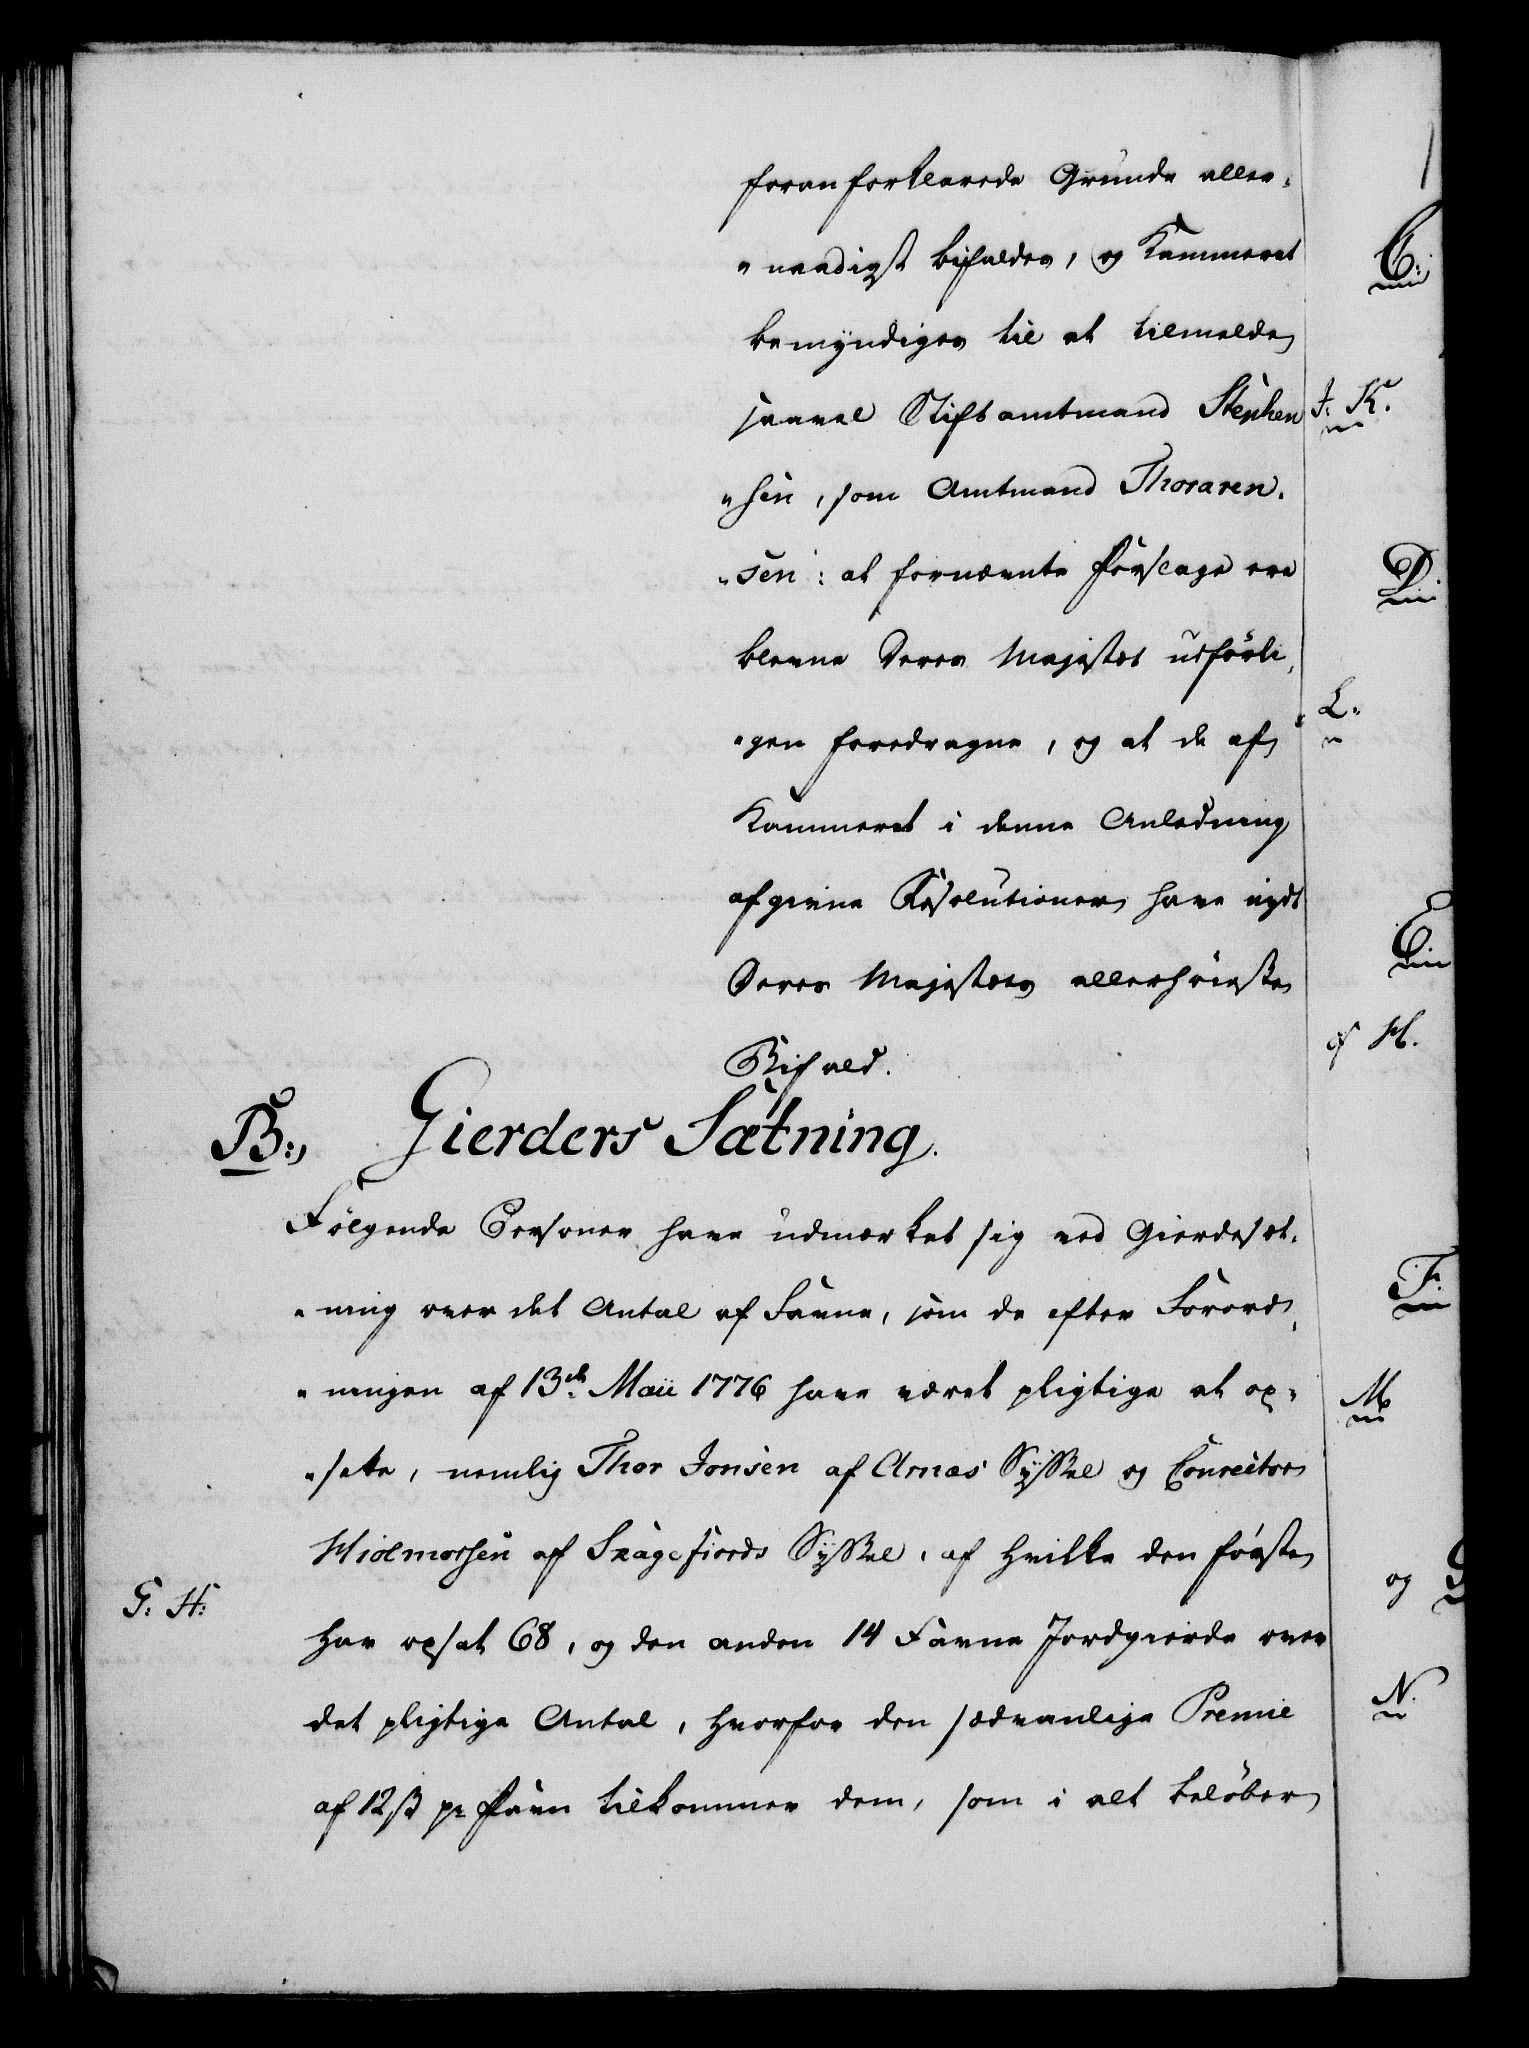 foranforklarede Grunde aller-
"naadigst bifaldes, og Kammeret
bemyndiges til at tilmelde
saavel Stiftamtmand Stephen
"sen, som Amtmand Thoraren-
"sen: at fornævnte Forslage ere
blevne Deres Majestæt udförli-
"gen foredragne, og at de af
Kammeret i denne Anledning
afgivne Resolutioner have nydt
Deres Majestæts allerhöieste
Bifald.
B:, Gierders Sætning.
Fölgende Personer have udmærket sig ved Gierdesæt-
"ning over det Antal af Favne, som de efter Forord-
"ningen af 13de Maii 1776 have været pligtige at op-
"sette, nemlig Thor Jonsen af Arnæs Syssel og Conrector
Hialmorsen af Skagefiords Syssel, af hvilke den förste
G: H:
har opsat 68, og den anden 14 Favne Jordgierde over
det pligtige Antal, hvorfor den sædvanlige Premie
af 12 ß pr Favn tilkommer dem, som i alt belöber
C:
I: K.
D:
L.
E:
af H.
F:
M
og G
N.